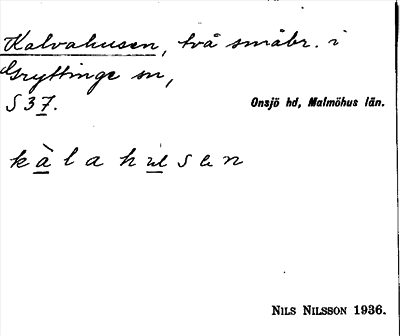 Kalvahusen, två småbr. i
Gryttinge sn,
S 37.
Onsjö hd, Malmöhus län.
kàlahusen
NILS NILSSON 1936.